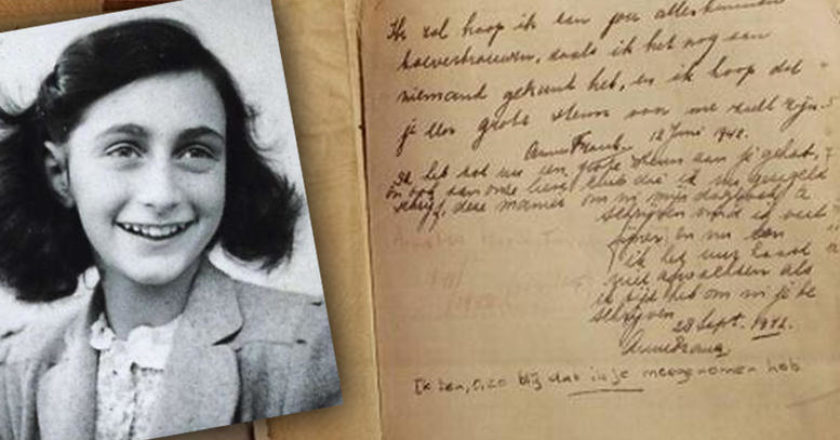 Ik zal hoop ik aan jou alles kunnen
toevertrouwen, zoals ik het nog aan
niemand gekund heb, en ik hoop dat
je een grote steun voor me zult zijn.
Anne Frank. 12 Juni 1942.
Ik heb tot nu een grote steun aan je gehad,
en ook aan onze lieve club die ik nu geregeld
schrijf, deze manier om in mijn dagboek te
schrijven vind ik veel
fijner en nu kan
ik het uur haast
niet afwachten als
ik tijd heb om in je te
schrijven.
28 Sept. 1942.
Anne Frank.
Ik ben, o, zo blij dat ik je meegenomen heb